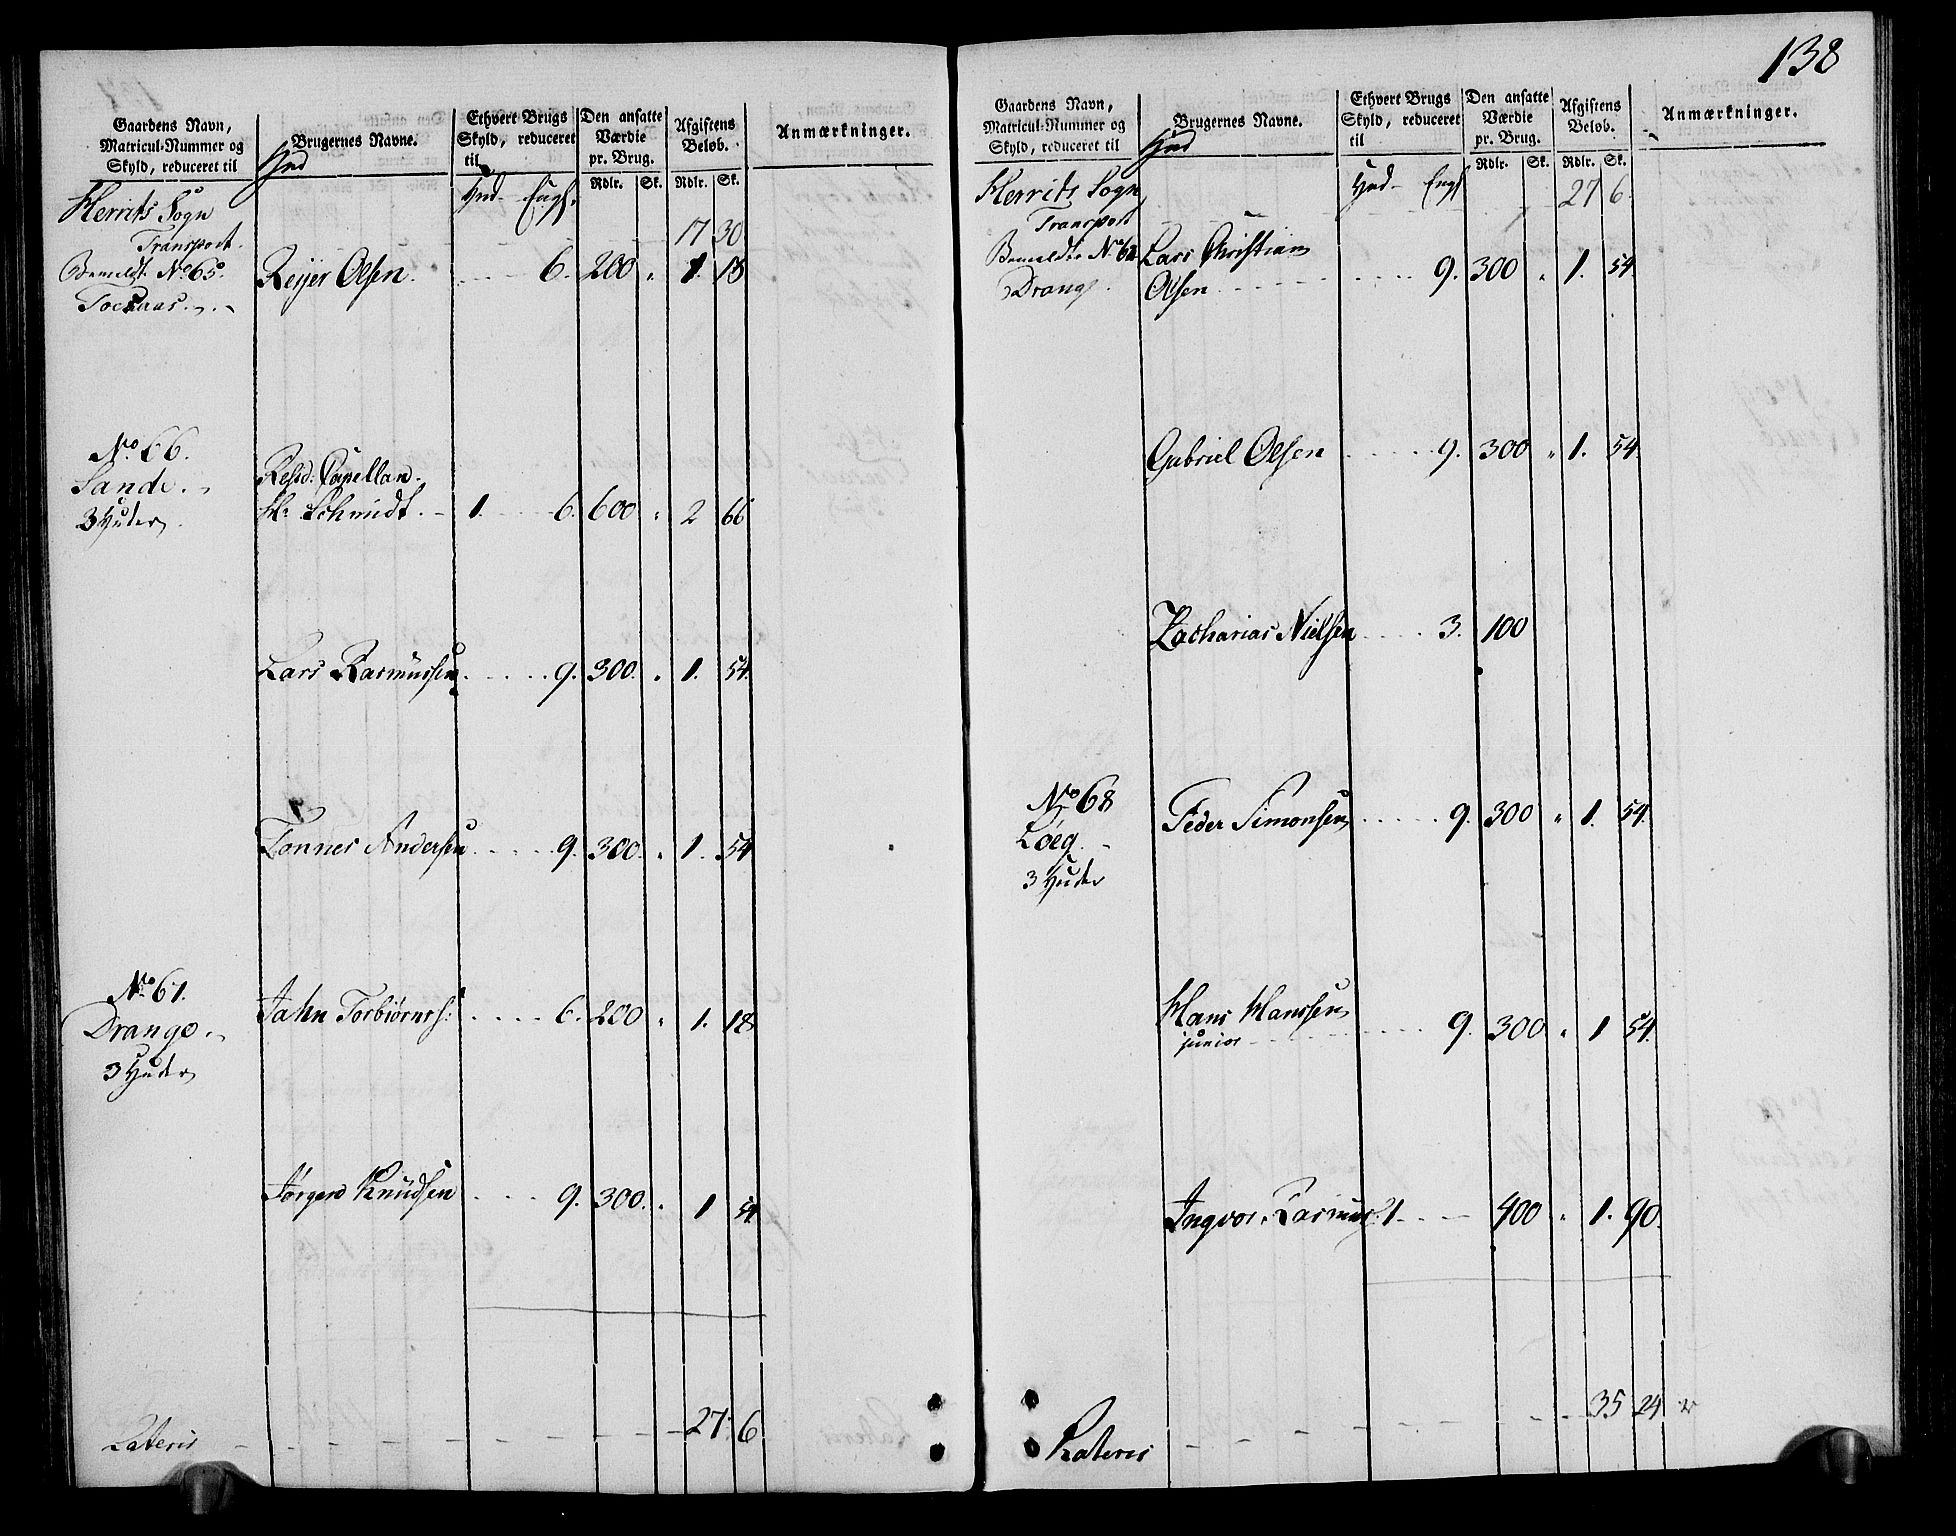 138
Gaardens Navn,
Matricul-Nummer og
Skyld, reduceret til
Hud
Brugernes Navne.
Ethvert Brugs
Skyld, reduceret
til
Den ansatte
Værdie
pr. Brug.
Afgiftens
Beløb.
Anmærkninger.
Hud- Engs.
Rdlr. Sk. Rdlr. Sk.
Herrits Sogn
Transport. 17 30
Bemeldte No 65.
Reijer Olsen. 6. 200 " 1. 18
No 66.
Sande.
3 Huder
Resid: Capellan
Hr Schmidt. 1. 6. 600 " 2 66
Lars Rasmussen 9. 300. " 1. 54.
Tønnes Andersen 9. 300. " 1. 54
No 67.
Drange
3 Huder
Jahn Torbiørns: 6. 200 " 1. 18
Jørgen Knudsen 9. 300. " 1 54
Lateris 27. 6
Gaardens Navn,
Matricul-Nummer og
Skyld, reduceret til
Hud
Brugernes Navne.
Ethvert Brugs
Skyld, reduceret
til
Den ansatte
Værdie
pr. Brug.
Afgiftens
Beløb.
Anmærkninger.
Rdlr. Sk. Rdlr. Sk.
Herrits Sogn Hud- Engs 27 6.
Transport
Bemeldte No 67.
Drange
Lars Christian
Olsen 9. 300 " 1. 54
Gabriel Olsen 9. 300 " 1. 54
Zacharias Nielsen 3. 100
No 68
Løeg.
3 Huder
Peder Simonsen 9. 300 " 1. 54.
Hans Hanssen
junior 9. 300 " 1 54.
Ingvor Rasmus: 1 400 " 1. 90.
Lateris 35 24